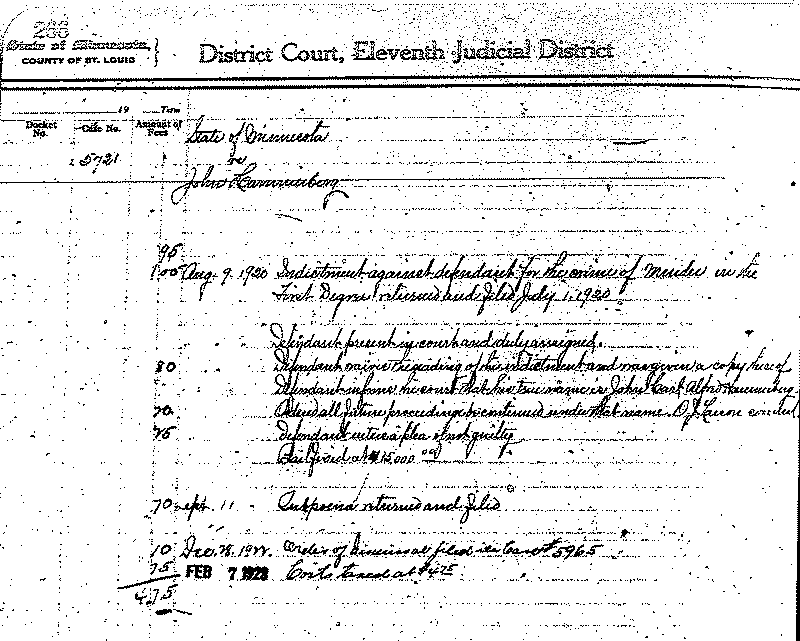 266
State of Minnesota,
COUNTY OF ST. LOUIS
District Court, Eleventh Judicial District
19 Term
Docket No. Case No. Amount of Fees
State of Minnesota
5721
vs
John
95
100 Aug. 9. 1920 Indictment against defendant for the crime of Murder in the
First Degree returned and filed July 1, 1920.
Defendant present in court and duly arraigned.
80 Defendant waives the reading of the indictment and was given a copy hereof
Defendant informs the court that his true name is John Carl Alfred
70 Ordered all future proceedings be continued under that name.
75 Defendant enters a plea of not guilty
Bail fixed at $15000 00
70 Sept. 11 Subpoena returned and filed
10 Dec. 1922. Order of dismissal filed in Case # 5965
75 FEB 7 1923 Costs taxed at $4.75
4.75